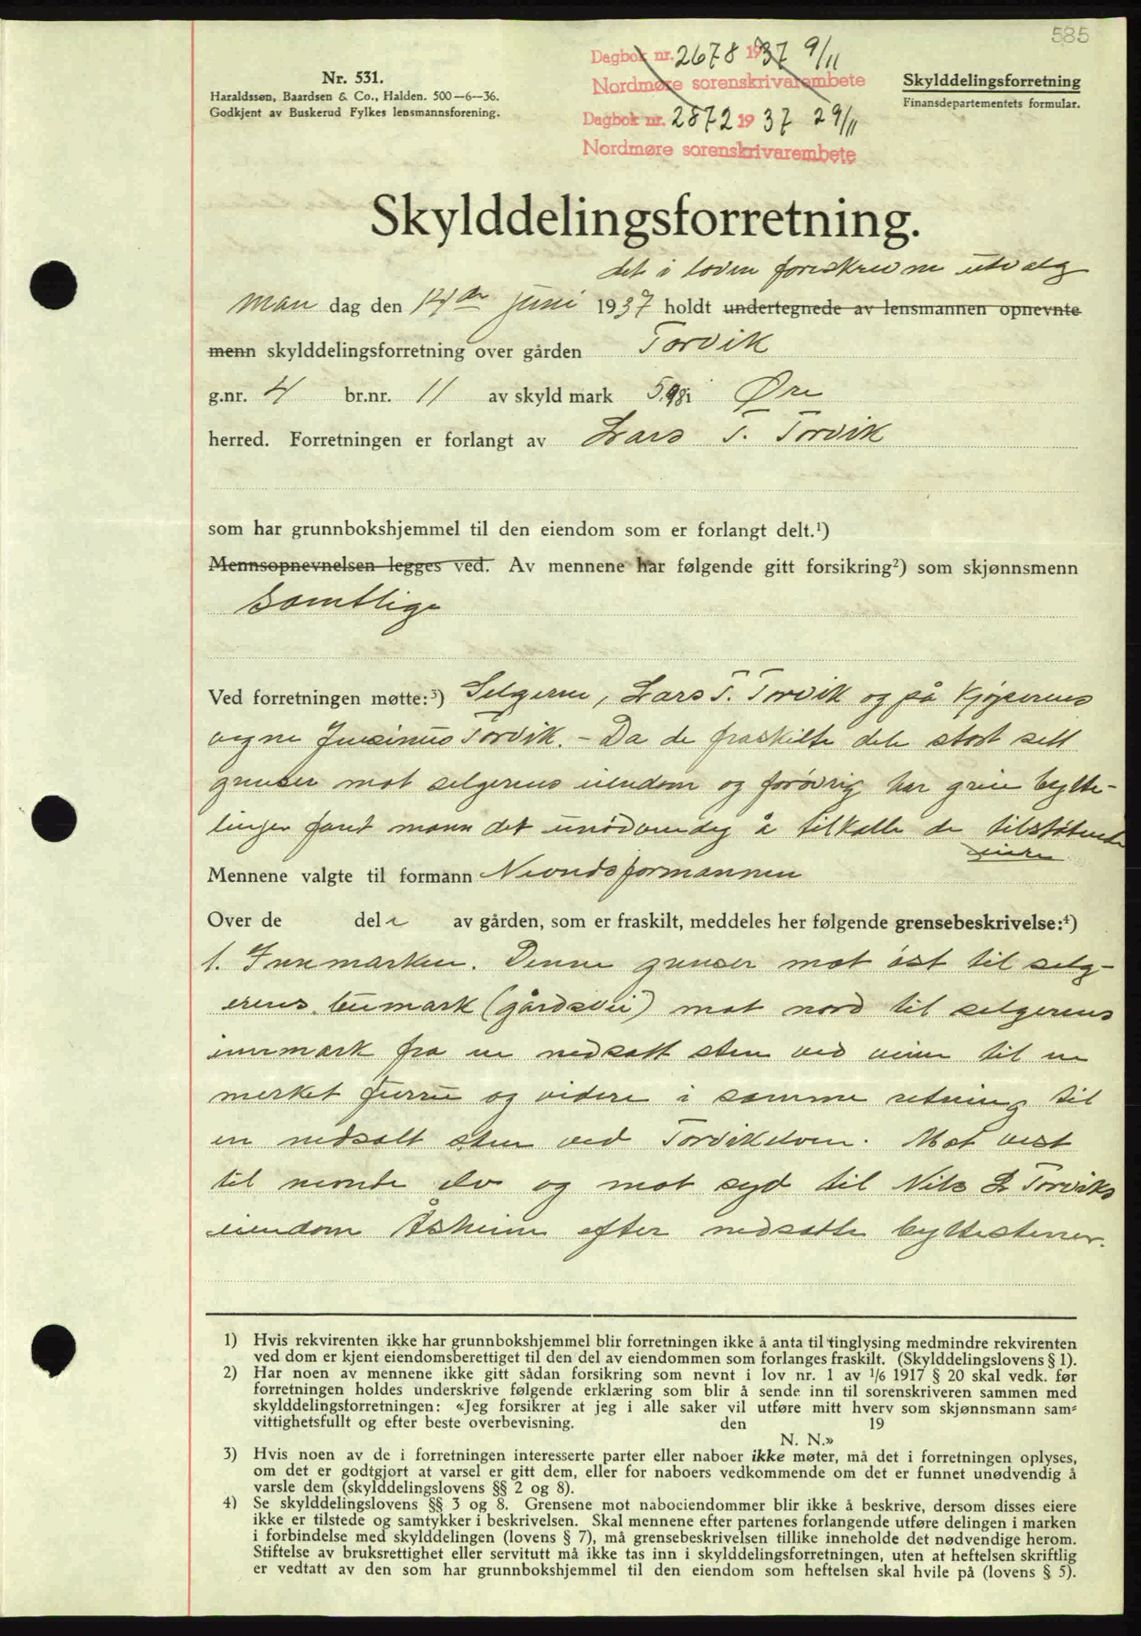 585
Dagbok nr. 2678 1937 9/11
Nordmøre sorenskrivarembete
Dagbok nr. 2872 1937 29/11
Nordmøre sorenskrivarembete
Nr. 531.
Haraldssen, Baardsen & Co., Halden. 500—6—36.
Godkjent av Buskerud Fylkes lensmannsforening.
Skylddelingsforretning
Finansdepartementets formular.
Skylddelingsforretning.
det i loven foreskrevne utvalg
Man dag den 14de juni 1937 holdt undertegnede av lensmannen opnevnte
menn skylddelingsforretning over gården Torvik
g.nr. 4 br.nr. 11 av skyld mark 5,98 i Øre
herred. Forretningen er forlangt av Lars T. Torvik
som har grunnbokshjemmel til den eiendom som er forlangt delt.¹)
Mennsopnevnelsen legges ved. Av mennene har følgende gitt forsikring²) som skjønnsmenn
Samtlige
Ved forretningen møtte:³) Selgeren, Lars T. Torvik og på kjøperens
vegne Torvik. – Da de fraskilte dele stort sett
grenser mot selgerens eiendom og forøvrig har greie bytte-
linjer fant mann det unødvendig å tilkalle de tilstøtende
eiere
Mennene valgte til formann Nevndsformannen
Over de dele av gården, som er fraskilt, meddeles her følgende grensebeskrivelse:⁴)
1. Innmarken. Denne grenser mot øst til selg-
erens bumark (gårdsvei) mot nord til selgerens
innmark fra en nedsatt sten ved veien til en
merket furru og videre i samme retning til
en nedsatt sten ved Torvikelven. Mot vest
til nevnte elv og mot syd til Nils L Torviks
eiendom Åsheim efter nedsatte byttestener.
1) Hvis rekvirenten ikke har grunnbokshjemmel blir forretningen ikke å anta til tinglysing medmindre rekvirenten
ved dom er kjent eiendomsberettiget til den del av eiendommen som forlanges fraskilt. (Skylddelingslovens § 1).
2) Har noen av mennene ikke gitt sådan forsikring som nevnt i lov nr. 1 av 1/6 1917 § 20 skal vedk. før
forretningen holdes underskrive følgende erklæring som blir å sende inn til sorenskriveren sammen med
skylddelingsforretningen: «Jeg forsikrer at jeg i alle saker vil utføre mitt hverv som skjønnsmann sam-
vittighetsfullt og efter beste overbevisning. den 19
N. N.»
3) Hvis noen av de i forretningen interesserte parter eller naboer ikke møter, må det i forretningen oplyses,
om det er godtgjort at varsel er gitt dem, eller for naboers vedkommende om det er funnet unødvendig å
varsle dem (skylddelingslovens §§ 2 og 8).
4) Se skylddelingslovens §§ 3 og 8. Grensene mot nabociendommer blir ikke å beskrive, dersom disses eiere
ikke er tilstede og samtykker i beskrivelsen. Skal mennene efter partenes forlangende utføre delingen i marken
i forbindelse med skylddelingen (lovens § 7), må grensebeskrivelsen tillike inneholde det nødvendige herom.
Stiftelse av bruksrettighet eller servitutt må ikke tas inn i skylddelingsforretningen, uten at heftelsen skriftlig
er vedtatt av den som har grunnbokshjemmel til den eiendom som heftelsen skal hvile på (lovens § 5).